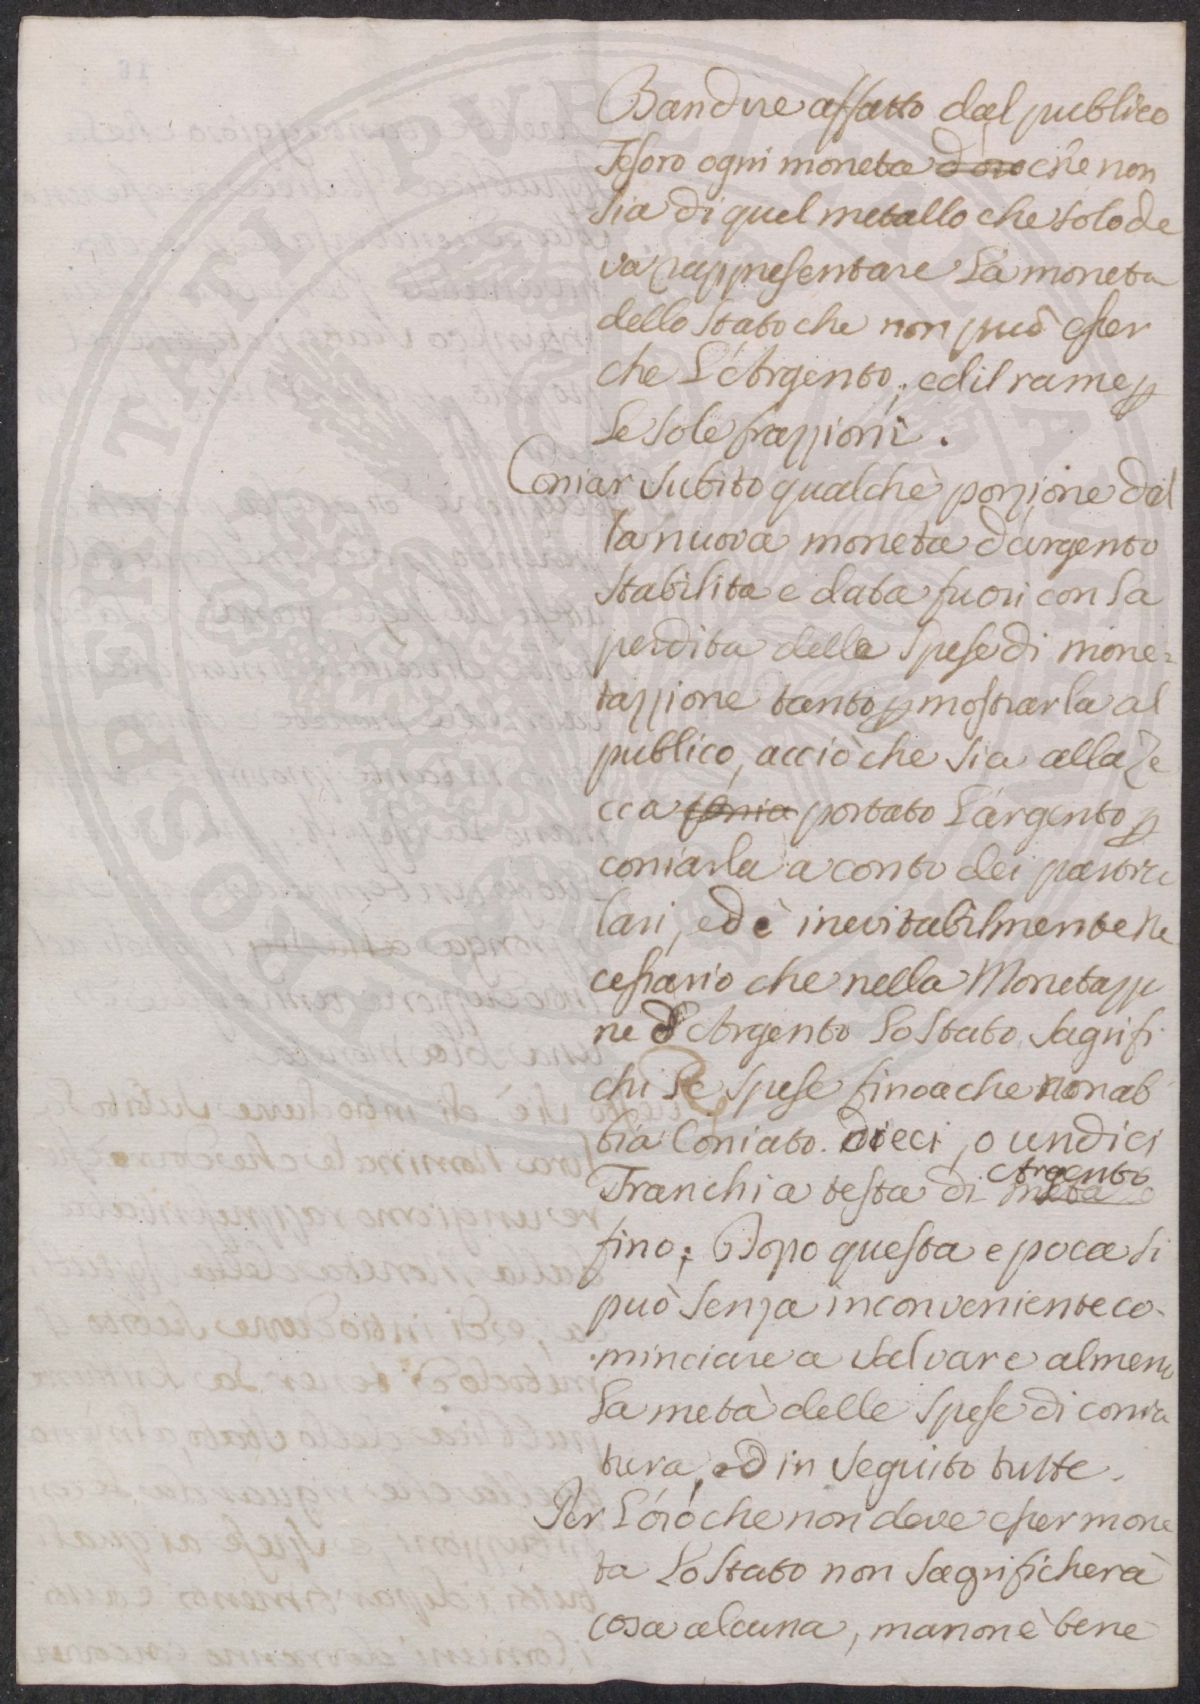 Bandire affatto dal publico
Tesoro ogni moneta d'oro che non
sia di quel metallo che solo de
va rappresentare la moneta
dello Stato che non può esser
che L'Argento, ed il rame p
le sole frazzioni.
Coniar subito qualche porzione del
la nuova moneta d'argento
stabilita e data fuori con la
perdita delle spese di mone=
tazzione tanto p mostrarla al
publico, acciò che sia alla Ze
cca portato L'argento p
coniarla a conto dei partico
lari, ed è inevitabilmente Ne
cessario che nella Monetazzi
ne d'Argento Lo Stato sagrifi
chi le spese fino a che non ab
bia Coniato. dieci, o undici
Franchi a testa di Argento
fino; Dopo questa epoca si
può senza inconveniente co-
minciare a salvare almeno
la metà delle spese di conia
tura, ed in seguito tutte.
Per L'oro che non deve esser mone
ta Lo Stato non sagrificherà
cosa alcuna, ma non è bene
PROSPERITATI PUBLICAE AUGENDAE